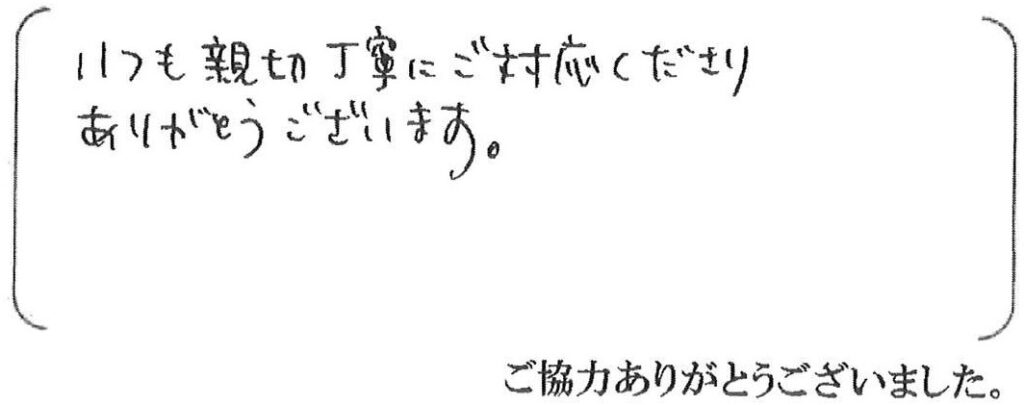 いつも親切丁寧にご対応くださり
ありがとうございます。
ご協力ありがとうございました。